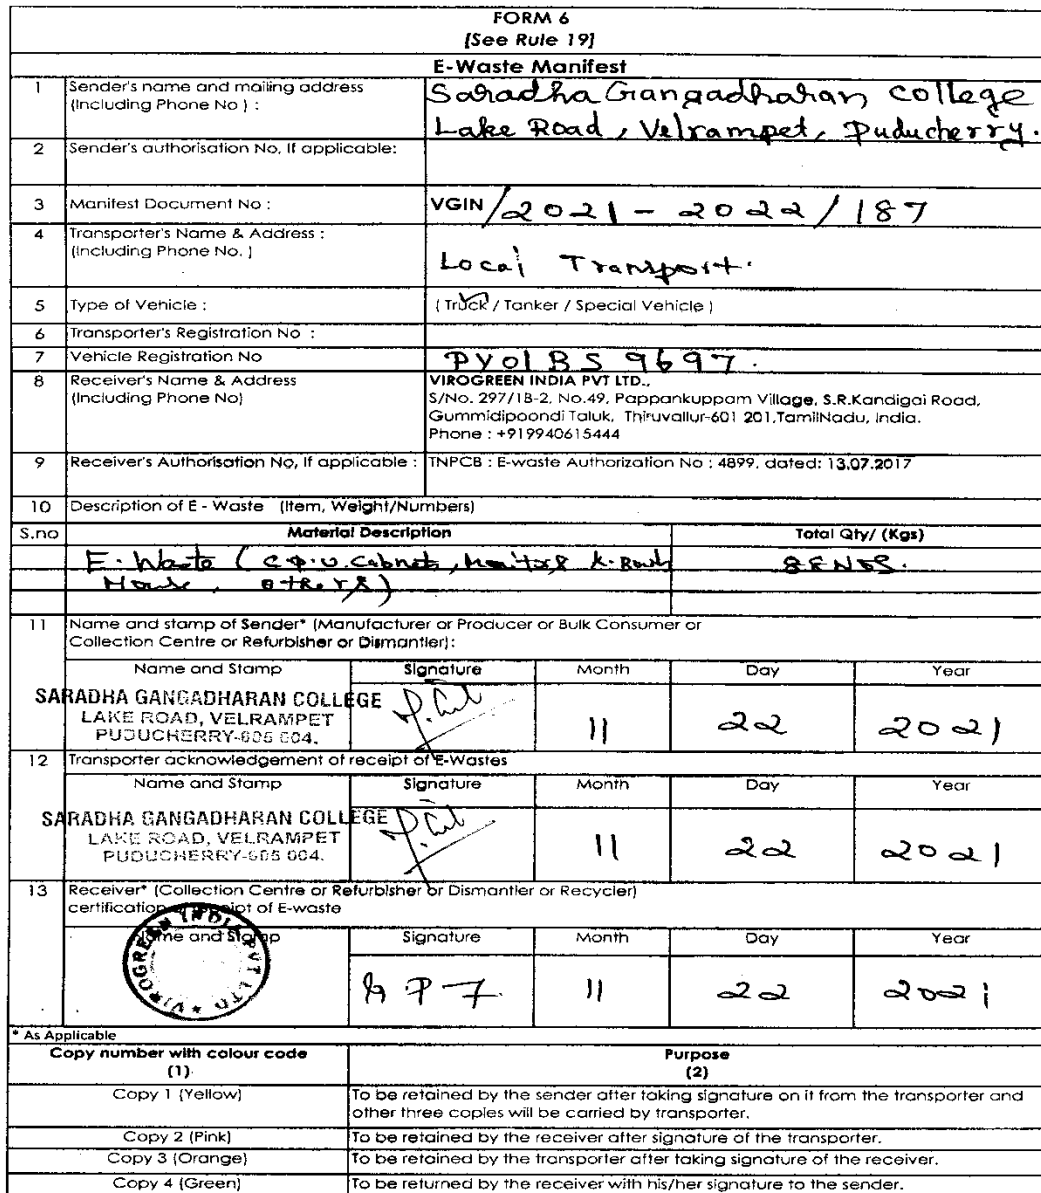 FORM 6
[See Rule 19]
E-Waste Manifest
1 Sender's name and mailing address Saradha Gangadharan college
(Including Phone No ) : Lake Road, Velrampet, Puducherry.
2 Sender's authorisation No, If applicable:
3 Manifest Document No : VGIN/2021-2022/187
4 Transporter's Name & Address :
(Including Phone No. ) Local Transport.
5 Type of Vehicle : ( Truck / Tanker / Special Vehicle )
6 Transporter's Registration No :
7 Vehicle Registration No PY01 BS 9697.
8 Receiver's Name & Address VIROGREEN INDIA PVT LTD.,
(Including Phone No) S/No. 297/1B-2, No.49, Pappankuppam Village, S.R.Kandigai Road,
Gummidipoondi Taluk, Thiruvallur-601 201,TamilNadu, India.
Phone : +919940615444
9 Receiver's Authorisation No, If applicable : TNPCB : E-waste Authorization No : 4899, dated: 13.07.2017
10 Description of E - Waste (Item, Weight/Numbers)
S.no Material Description Total Qty/ (Kgs)
E. Waste ( C.P.U. Cabnets, Monitors
Mouse, others)
11 Name and stamp of Sender* (Manufacturer or Producer or Bulk Consumer or
Collection Centre or Refurbisher or Dismantler):
Name and Stamp Signature Month Day Year
SARADHA GANGADHARAN COLLEGE
LAKE ROAD, VELRAMPET
PUDUCHERRY-605 004. 11 22 2021
12 Transporter acknowledgement of receipt of E-Wastes
Name and Stamp Signature Month Day Year
SARADHA GANGADHARAN COLLEGE
LAKE ROAD, VELRAMPET
PUDUCHERRY-605 004. 11 22 2021
13 Receiver* (Collection Centre or Refurbisher or Dismantler or Recycler)
certification of receipt of E-waste
Name and Stamp Signature Month Day Year
VIROGREEN INDIA PVT LTD *
11 22 2021
* As Applicable
Copy number with colour code Purpose
(1) (2)
Copy 1 (Yellow) To be retained by the sender after taking signature on it from the transporter and
other three copies will be carried by transporter.
Copy 2 (Pink) To be retained by the receiver after signature of the transporter.
Copy 3 (Orange) To be retained by the transporter after taking signature of the receiver.
Copy 4 (Green) To be returned by the receiver with his/her signature to the sender.